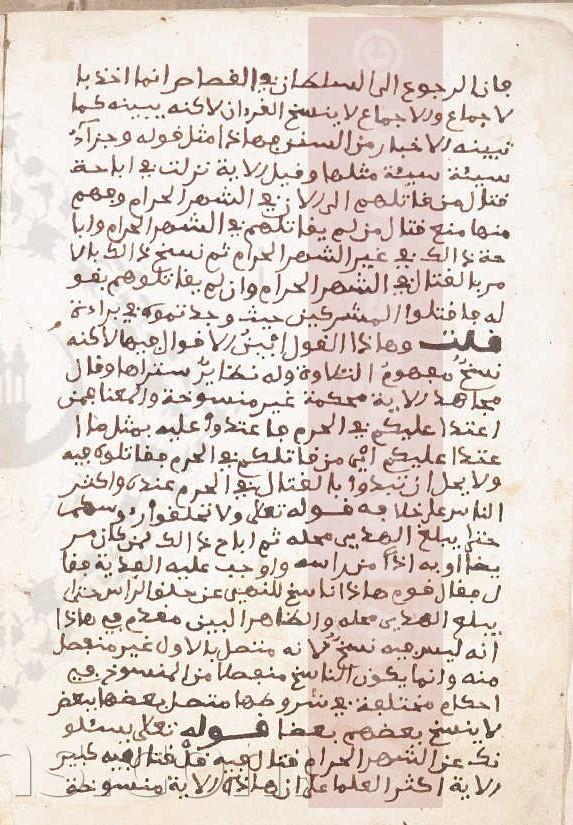 فان الرجوع الى السلطان في القصاص انما اخذ با
لاجماع والاجماع لا ينسخ القران لاكنه يبينه كما
تبينه الاخبار من السنن فهاذا مثل قوله وجزآء
سيئة سيئة مثلها وفيل الاية نزلت في اباحة
قتال من قاتلهم الى الان في الشهر الحرام وفهم
منها منع قتال من لم يقاتلهم في الشهر الحرام وابا
حة ذالك في غير الشهر الحرام ثم نسخ ذالك بالا
مر بالقتال في الشهر الحرام وان لم يقاتلوهم بقو
له فاقتلوا المشركين حيث وجدتموهم في براءة
قلت وهاذا القول ابين الاقوال فيها لاكنه
نسخ مفهوم التلاوة وله نظاير ستراها وقال
مجاهد الاية محكمة غير منسوخة والمعنا فمن
اعتدا عليكم في الحرم فاعتدوا عليه بمثل ما ا
عتدا عليكم اي من قاتلكم في الحرم فقاتلوه فيه
ولا يحل ان تبدوا بالقتال في الحرم عنده واكثر
الناس على خلافه قوله تعلى ولا تحلقوا روسكم
حتى يبلغ الهدي محله ثم اباح ذالك لمن كان مر
يضا او به اذا من راسه واوجب عليه الفدية فقا
ل فقال قوم هاذا ناسخ للنهي عن حلق الراس حتى
يبلغ الهدي محله والظاهر البين في هاذا
انه ليس فيه نسخ لانه متصل بالاول غير منفصل
منه وانما يكون الناسخ منفصلا من المنسوخ فهي
احكام مختلفة في شروطها متصل بعضها ببعض
لا ينسخ بعضهم بعضا قوله تعلى يسئلو
نك عن الشهر الحرام قتال فيه قل قتال فيه كبير
الاية اكثر العلما على ان هاذه الاية منسوخة